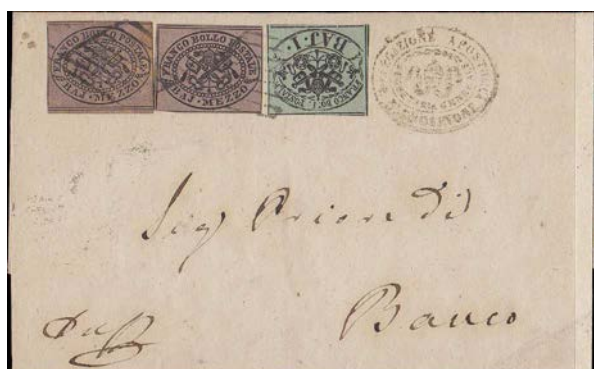 FRANCO BOLLO POSTALE
BAJ · MEZZO
FRANCO BOLLO POSTALE
BAJ · MEZZO
FRANCO BOLLO POSTALE
BAJ · 1 ·
DELEGAZIONE APOSTOLICA
FROSINONE
Sig Priore di
Bauco